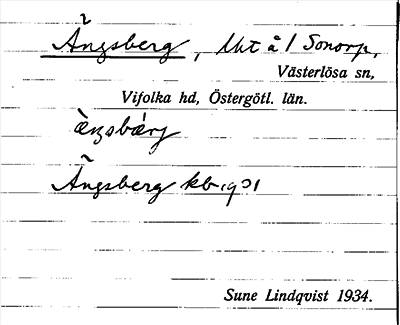 Ängsberg, lht å 1 Sonorp,
Västerlösa sn,
Vifolka hd, Östergötl. län.
æ̀ŋsbærj
Ängsberg kb 1901
Sune Lindqvist 1934.